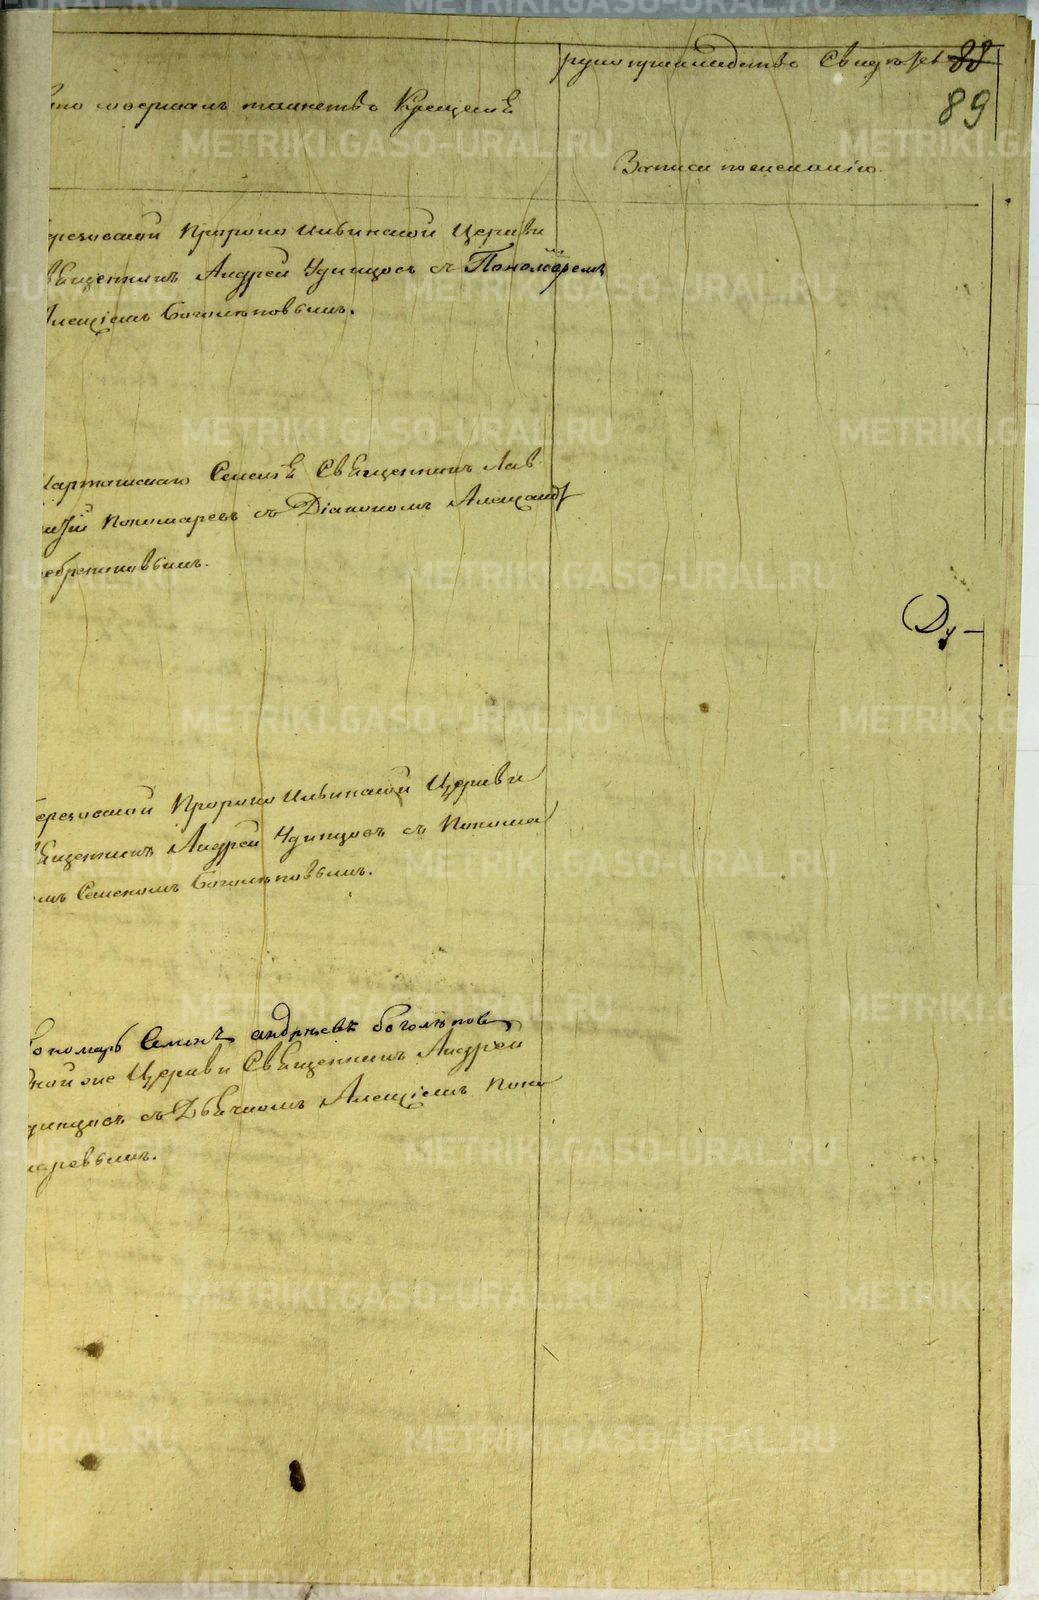 рукоприкладство Свидѣте 88
89
то совершалъ таинство Крещенія
Записи по желанію.
ерезовской Пророко Ильинской Церкви
вященникъ Андрей Удинцовъ съ Пономаремъ
лексіемъ Боголѣповымъ.
Шарташскаго Селенія Священникъ Лав
рентій Пономаревъ съ Діакономъ Александр
ребренниковымъ.
Ду
ерезовской Пророко Ильинской Церкви
вященникъ Андрей Удинцовъ съ Понома
емъ Семеномъ Боголѣповымъ.
пономарь Семенъ андрѣевъ боголѣповъ
ной же Церкви Священникъ Андрей
динцовъ съ Дьячкомъ Алексіемъ Поно
маревымъ.
METRIKI.GASO-URAL.RU